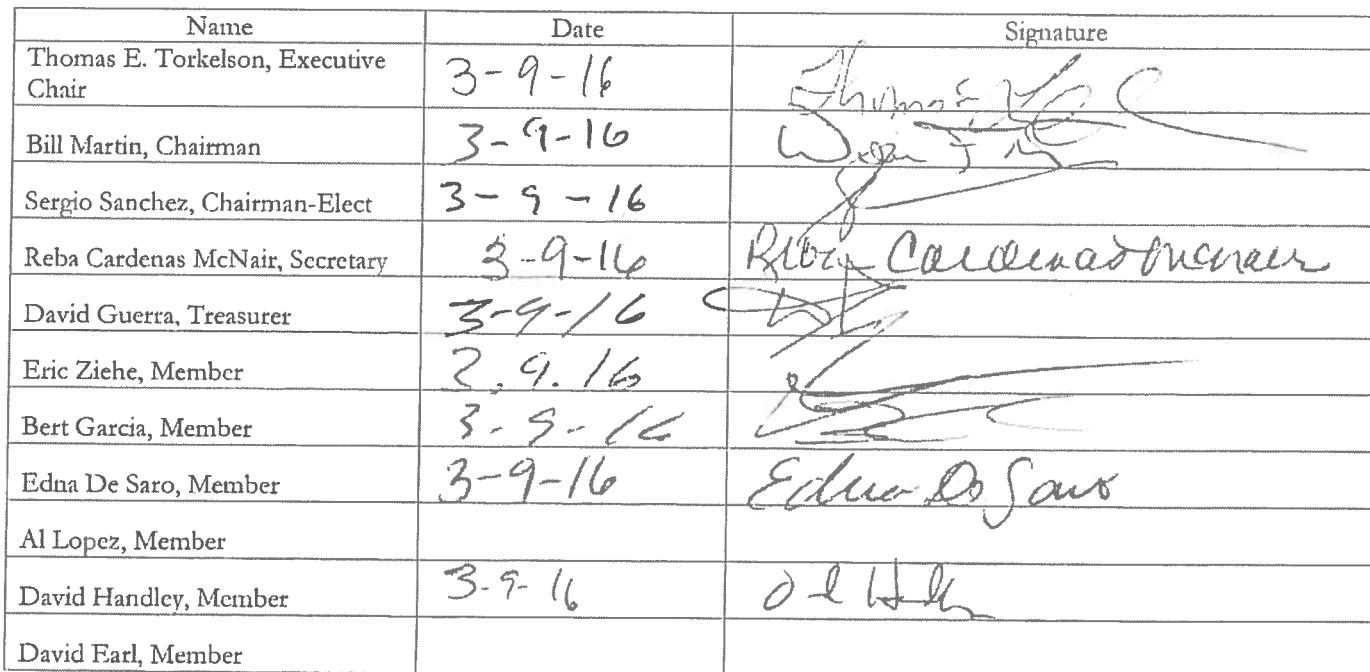 Name Date Signature
Thomas E. Torkelson, Executive
Chair 3-9-16
Bill Martin, Chairman 3-9-16
Sergio Sanchez, Chairman-Elect 3-9-16
Reba Cardenas McNair, Secretary 3-9-16 Reba Cardenas McNair
David Guerra, Treasurer 3-9-16
Eric Ziehe, Member 2.9.16
Bert Garcia, Member 3-9-16
Edna De Saro, Member 3-9-16 Edna De Saro
Al Lopez, Member
David Handley, Member 3-9-16
David Earl, Member